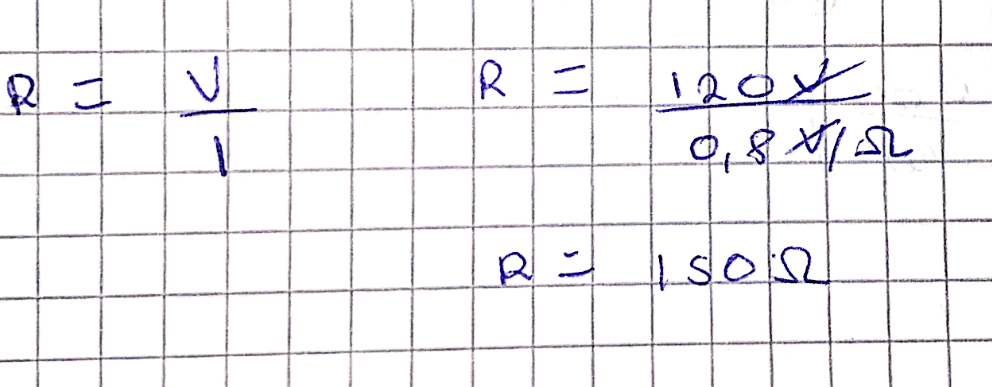 R = V/I R = 120V/0,8 V/Ω
R = 150Ω